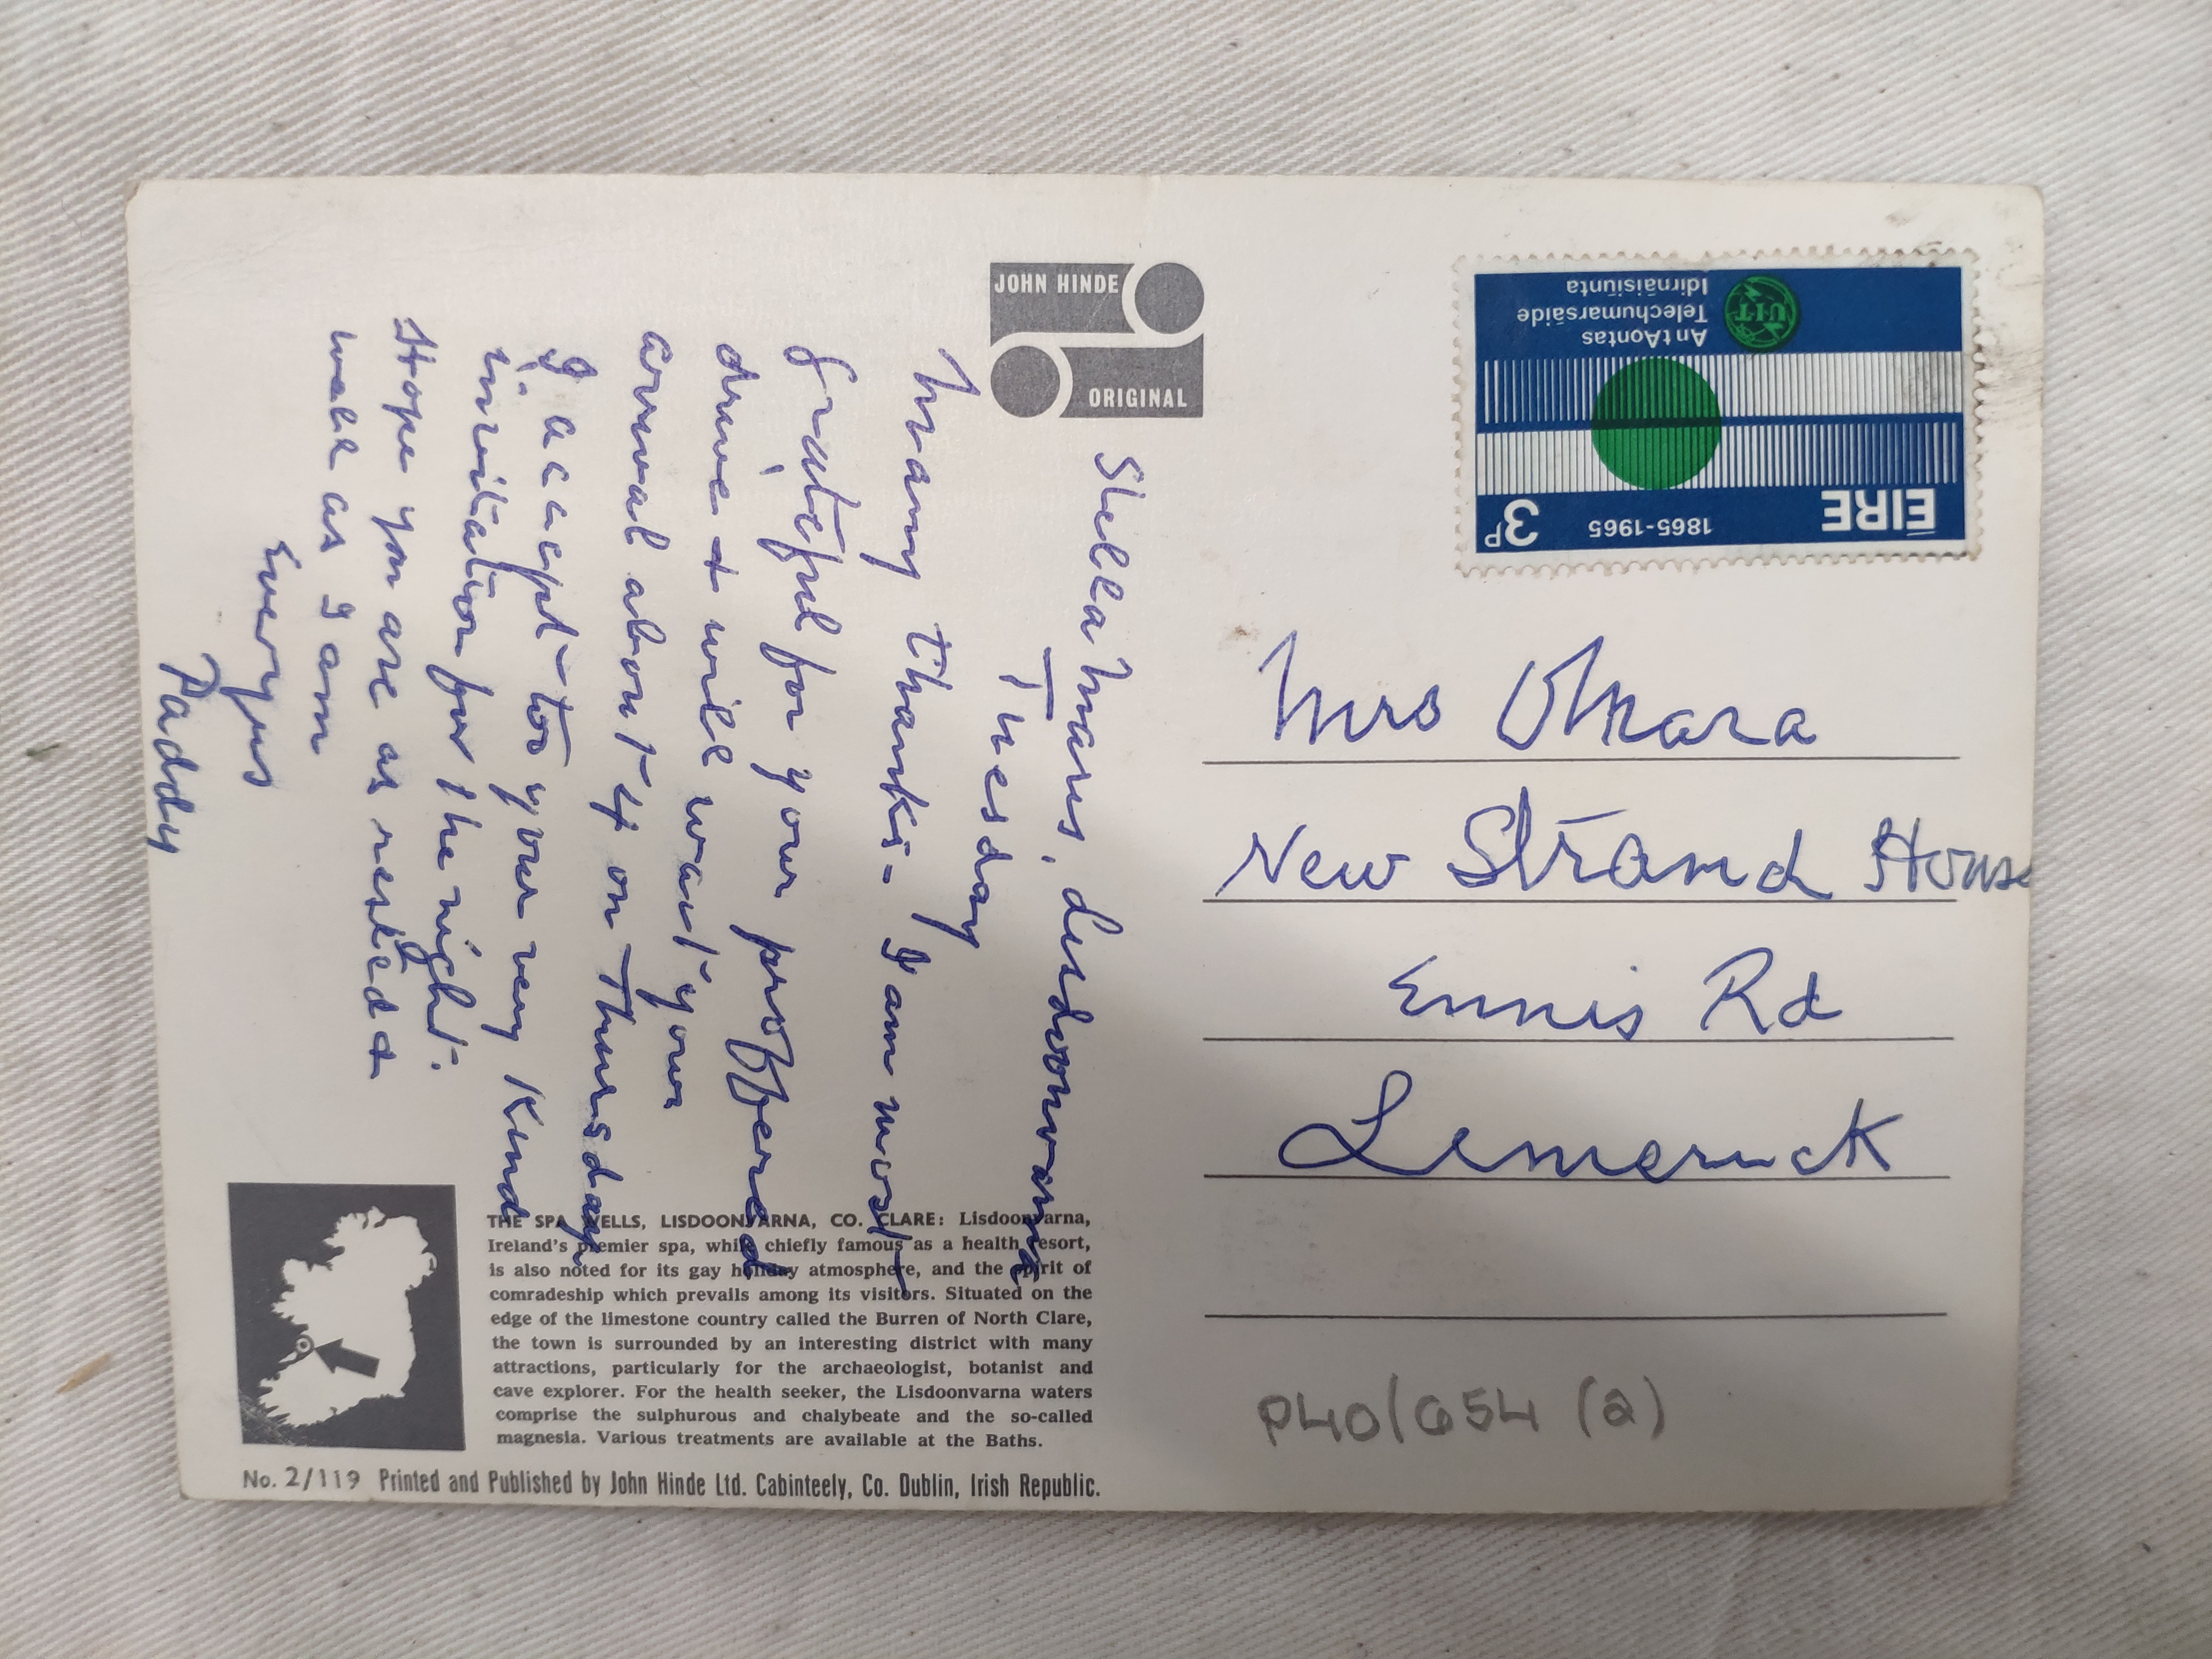 JOHN HINDE
ORIGINAL
Stella Maris, Lisdoonvarna
Tuesday
Many thanks - I am most
grateful for your proffered
drive & will wait your
arrival about 4 on Thursday
I accept too your very kind
invitation for the night.
Hope you are as rested &
well as I am
Ever yrs
Paddy
THE SPA WELLS, LISDOONVARNA, CO. CLARE: Lisdoonvarna,
Ireland's premier spa, while chiefly famous as a health resort,
is also noted for its gay holiday atmosphere, and the spirit of
comradeship which prevails among its visitors. Situated on the
edge of the limestone country called the Burren of North Clare,
the town is surrounded by an interesting district with many
attractions, particularly for the archaeologist, botanist and
cave explorer. For the health seeker, the Lisdoonvarna waters
comprise the sulphurous and chalybeate and the so-called
magnesia. Various treatments are available at the Baths.
No. 2/119 Printed and Published by John Hinde Ltd. Cabinteely, Co. Dublin, Irish Republic.
ÉIRE 1865-1965 3P
An tAontas
Telechumarsáide
Idirnáisiúnta
UIT
Mrs O'Mara
New Strand House
Ennis Rd
Limerick
P40/654 (2)